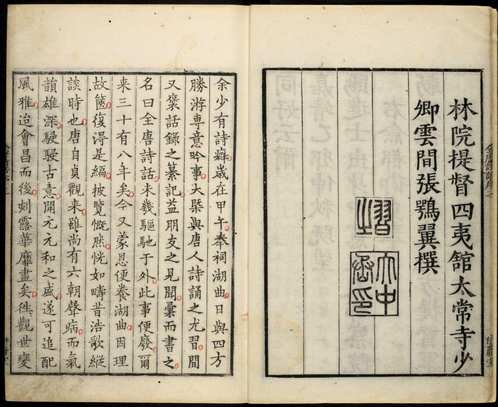 林院提督四夷館太常寺少
卿雲間張鶚翼撰
余少有詩癖歲在甲午奉祠湖曲日與四方
勝游專意吟事大槩與唐人詩誦之尤習間
又裒話錄之纂記益朋友之見聞彙而書之
名曰全唐詩話未幾驅馳于外此事便廢爾
来三十有八年矣今又蒙恩便養湖曲因理
故篋復得是編披覽慨然恍如疇昔浩歌縱
談時也唐自貞觀来雖尚有六朝聲病而氣
韻雄深駸駸古意開元元和之盛遂可追配
風雅迨會昌而後刻露華靡盡矣徃觀世變